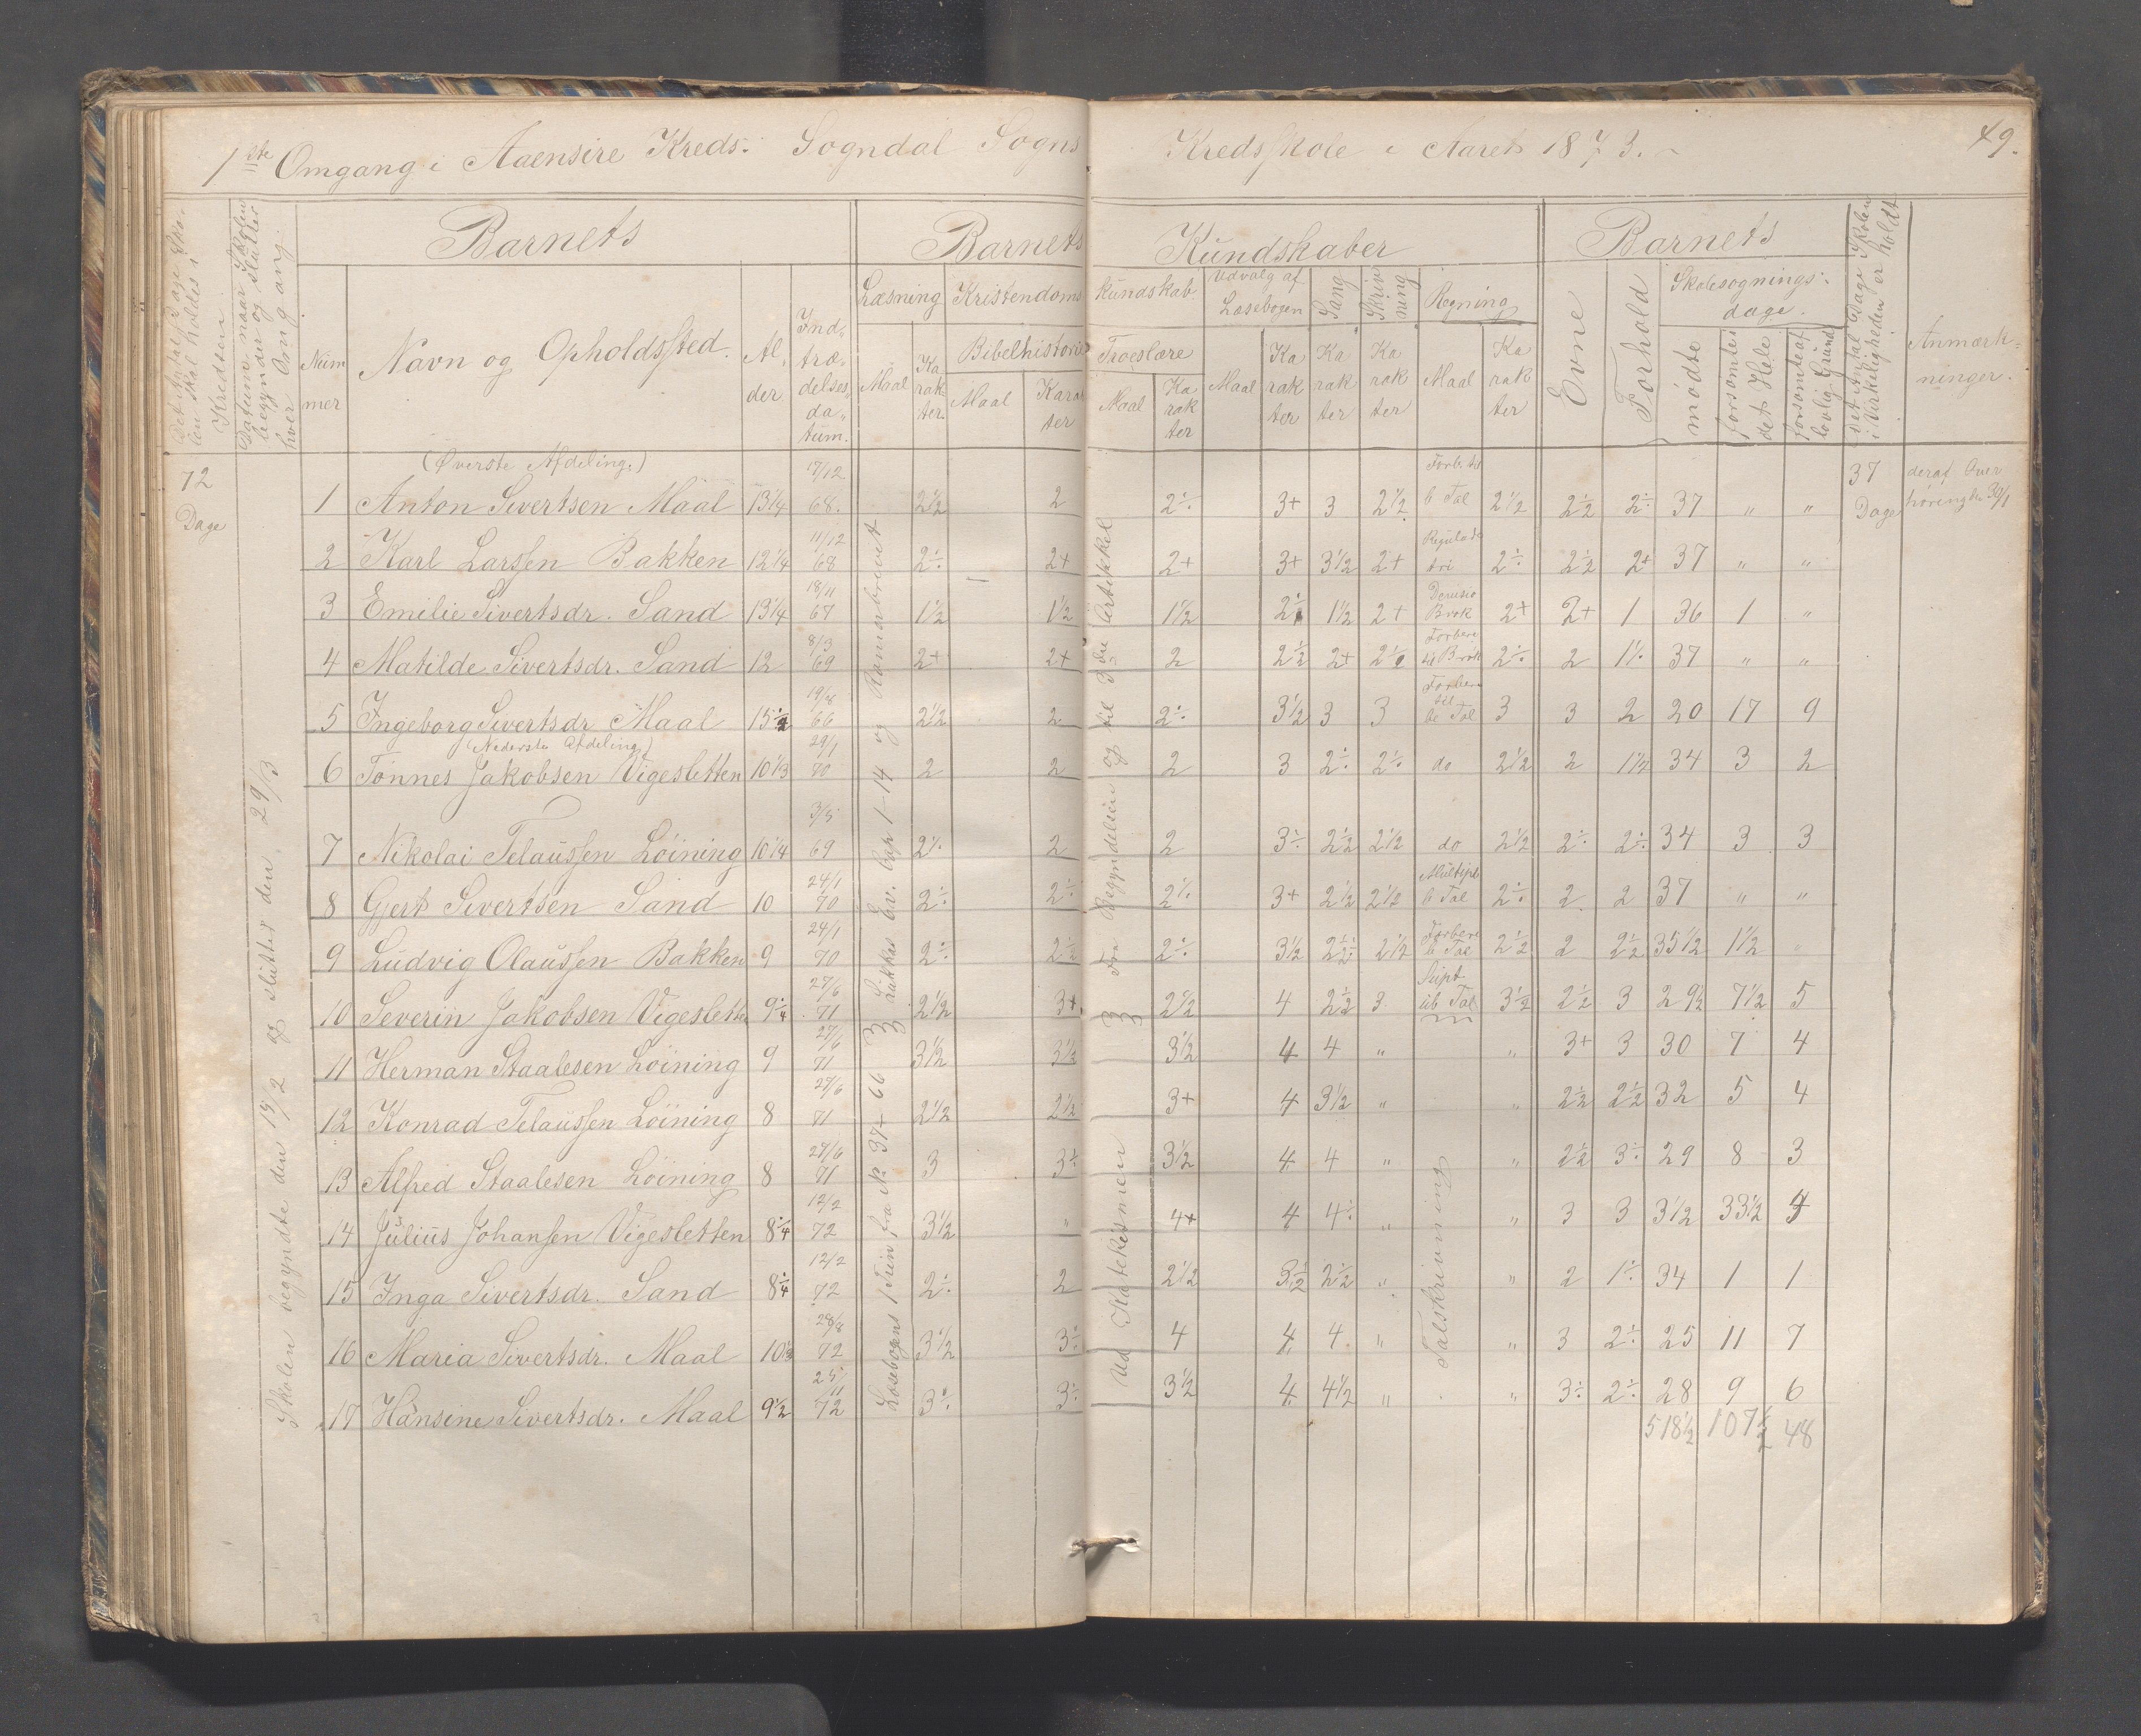 1ste Omgang i Aaensire Kreds: Sogndal Sogns Kredsskole i Aaret 1873.
49.
Det Antal Dage Skolen skal holdes i Kredsen
Datum naar Skolen begynder og slutter hver Omgang.
Barnets
Barnets Kundskaber
Barnets
Det Antal Dage Skolen i Virkeligheden er holdt
Anmærkninger.
Nummer
Navn og Opholdssted.
Alder
Indtrædelsesdatum.
Læsning
Kristendomskundskab
Udvalg af Læsebogen
Sang
Skrivning
Regning
Evne
Forhold
Skolesøgningsdage.
Maal
Karakter
Bibelhistorie
Maal
Karakter
Troeslære
Maal
Karakter
Maal
Karakter
Karakter
Karakter
Maal
Karakter
mødte
forsømte i det Hele
forsømte af lovlig Grund
72 Dage
Skolen begyndte den 13/2 og slutted den 29/3
(Øverste Afdeling.)
1 Anton Sivertsen Maal 13 1/4 17/12 68. 2 1/2 2 2÷ 3+ 3 2 1/2 b Tal 2 1/2 2 1/2 2÷ 37 " " 37 Dage deraf Overhøring den 30/1
2 Karl Larssen Bakken 12 1/4 11/12 68 2÷ 2+ 2+ 3+ 3 1/2 2+ Regula de tri 2÷ 2 1/2 2+ 37 " "
3 Emilie Sivertsdr. Sand 13 1/4 18/11 67 1 1/2 1 1/2 1 1/2 2÷ 1 1/2 2+ Brøk 2+ 2+ 1 36 1 "
4 Matilde Sivertsdr. Sand 12 8/3 69 2+ 2+ 2 2 1/2 2+ 2÷ 2÷ 2 1÷ 37 " "
5 Ingeborg Sivertsdr Maal 15 1/2 19/8 66 2 1/2 2 2÷ 3 1/2 3 3 be Tal 3 3 2 20 17 9
(Nederste Afdeling)
6 Tønnes Jakobsen Vigesletten 10 1/3 29/1 70 2 2 2 3 2÷ 2÷ do 2 1/2 2 1 1/2 34 3 2
7 Nikolai Telaussen Løining 10 1/4 3/5 69 2÷ 2 2 3÷ 2 1/2 2 1/2 do 2 1/2 2÷ 2÷ 34 3 3
8 Gjert Sivertsen Sand 10 24/1 70 2÷ 2÷ 2÷ 3+ 2 1/2 2 1/2 Multipl b Tal 2÷ 2 2 37 " "
9 Ludvig Olaussen Bakken 9 24/1 70 2÷ 2 1/2 2÷ 3 1/2 2 1/2 2 1/2 b Tal 2 1/2 2 2 1/2 35 1/2 1 1/2 "
10 Severin Jakobsen Vigesletten 9 1/4 27/6 71 2 1/2 3+ 2 1/2 4 2 1/2 3 ub Tal 3 1/2 2 1/2 3 29 1/2 7 1/2 5
11 Herman Staalesen Løining 9 27/6 71 3 1/2 3 1/2 3 1/2 4 4 " " 3+ 3 30 7 4
12 Konrad Telaussen Løining 8 27/6 71 2 1/2 2 1/2 3+ 4 3 1/2 " " 2 1/2 2 1/2 32 5 4
13 Alfred Staalesen Løining 8 27/6 71 3 3÷ 3 1/2 4 4 " " 2 1/2 3÷ 29 8 3
14 Julius Johansen Vigesletten 8 1/4 12/2 72 3 1/2 " 4+ 4 4÷ " " 3 3 3 1/2 33 1/2 4
15 Inga Sivertsdr. Sand 8 1/4 12/2 72 2÷ 2 2 1/2 3 1/2 2 1/2 " " 2 1÷ 34 1 1
16 Maria Sivertsdr. Maal 10 1/3 28/8 72 3 1/2 3÷ 4 4 4 " " 3 2÷ 25 11 7
17 Hansine Sivertsdr. Maal 9 1/2 25/11 72 3÷ 3÷ 3 1/2 4 4 1/2 " " 3÷ 2÷ 28 9 6
518 1/2 107 1/2 48
Læsebogens 1 Trin fra No 37-66 Lukkas Ev. Cap 1-14 og Romerbrevet
Ud Katekismen
Fra Begyndelsen og til 3die Artikkel
Talskrivning